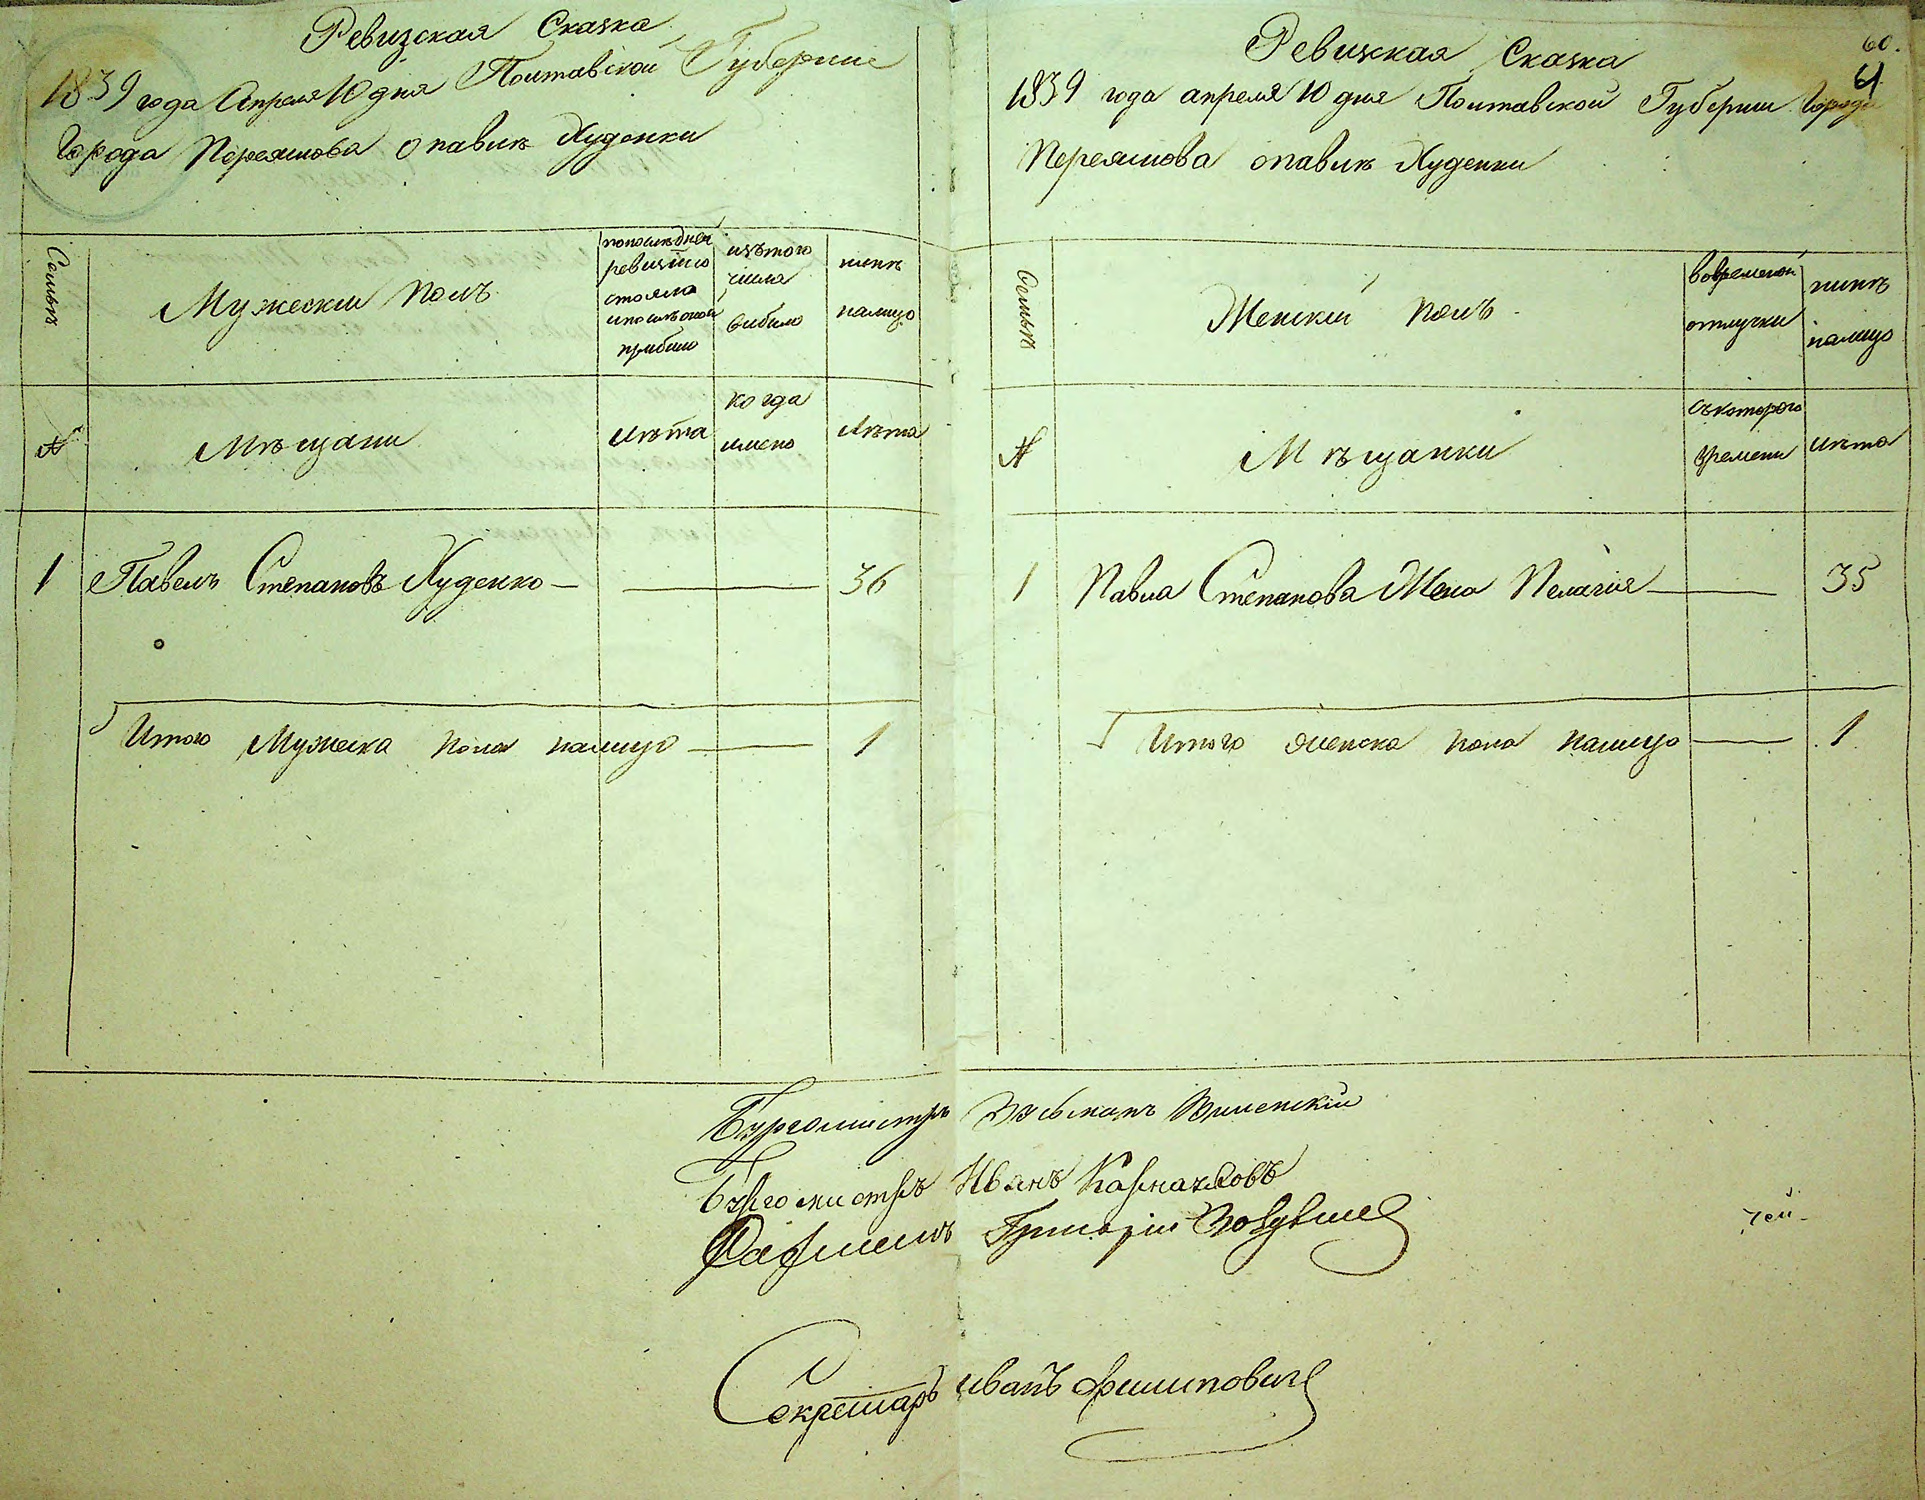 Ревизская Сказка
1839 года Апреля 10 дня Полтавской Губернии
Города Переяслова о павле Худенки
Семьи
Мужески полъ
попоследней
ревизіи со
стояло
и после оной
прибыло
изътого
числа
выбыло
ныне
налицо
№
Мещани
лета
когда
имено
лета
1 Павелъ Степановъ Худенко — — 36
Итого Мужеска пола налицо — 1
60.
61
Ревизская Сказка
1839 года апреля 10 дня Полтавской Губернии Города
Переяслова о павле Худенки
Семьи
Женскій полъ
вовременой
отлучки
ныне
налицо
№
Мещанки
съкоторого
времени
лета
1 Павла Степанова Жена Пелагія — 35
Итого женска пола налицо — 1
Бургомистръ
Бургомистръ Иванъ
Ратманъ Григорій
чей
Секретарь Иванъ Филиповичъ